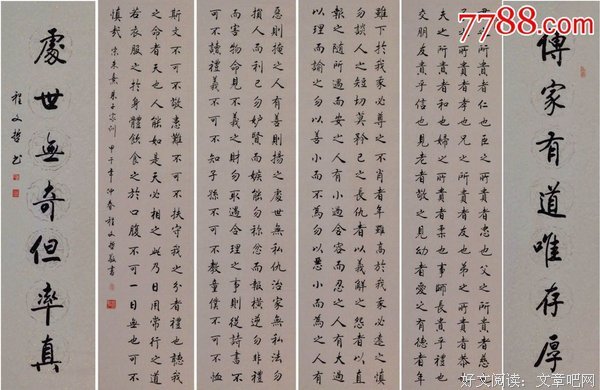 7788.com
傳家有道唯存厚
君之所貴者仁也臣之所貴者忠也父之所貴者慈
也子之所貴者孝也兄之所貴者友也弟之所貴者恭也
夫之所貴者和也婦之所貴者柔也事師長貴乎禮也
交朋友貴乎信也見老者敬之見幼者愛之有德者年
雖下於我我必尊之不肖者年雖高於我我必遠之慎
勿談人之短切莫矜己之長仇者以義解之怨者以直
報之隨所遇而安之人有小過含容而忍之人有大過
以理而諭之勿以善小而不為勿以惡小而為之人有
惡則掩之人有善則揚之處世無私仇治家無私法勿
損人而利己勿妒賢而嫉能勿稱忿而報橫逆勿非禮
而害物命見不義之財勿取遇合理之事則從詩書不
可不讀禮義不可不知子孫不可不教童僕不可不恤
斯文不可不敬患難不可不扶守我之分者禮也聽我
之命者天也人能如是天必相之此乃日用常行之道
若衣服之於身體飲食之於口腹不可一日無也可不
慎哉 宋朱熹朱子家訓 甲午年仲春程文哲敬書
處世無奇但率真
程文哲書
好文阅读：文章吧网